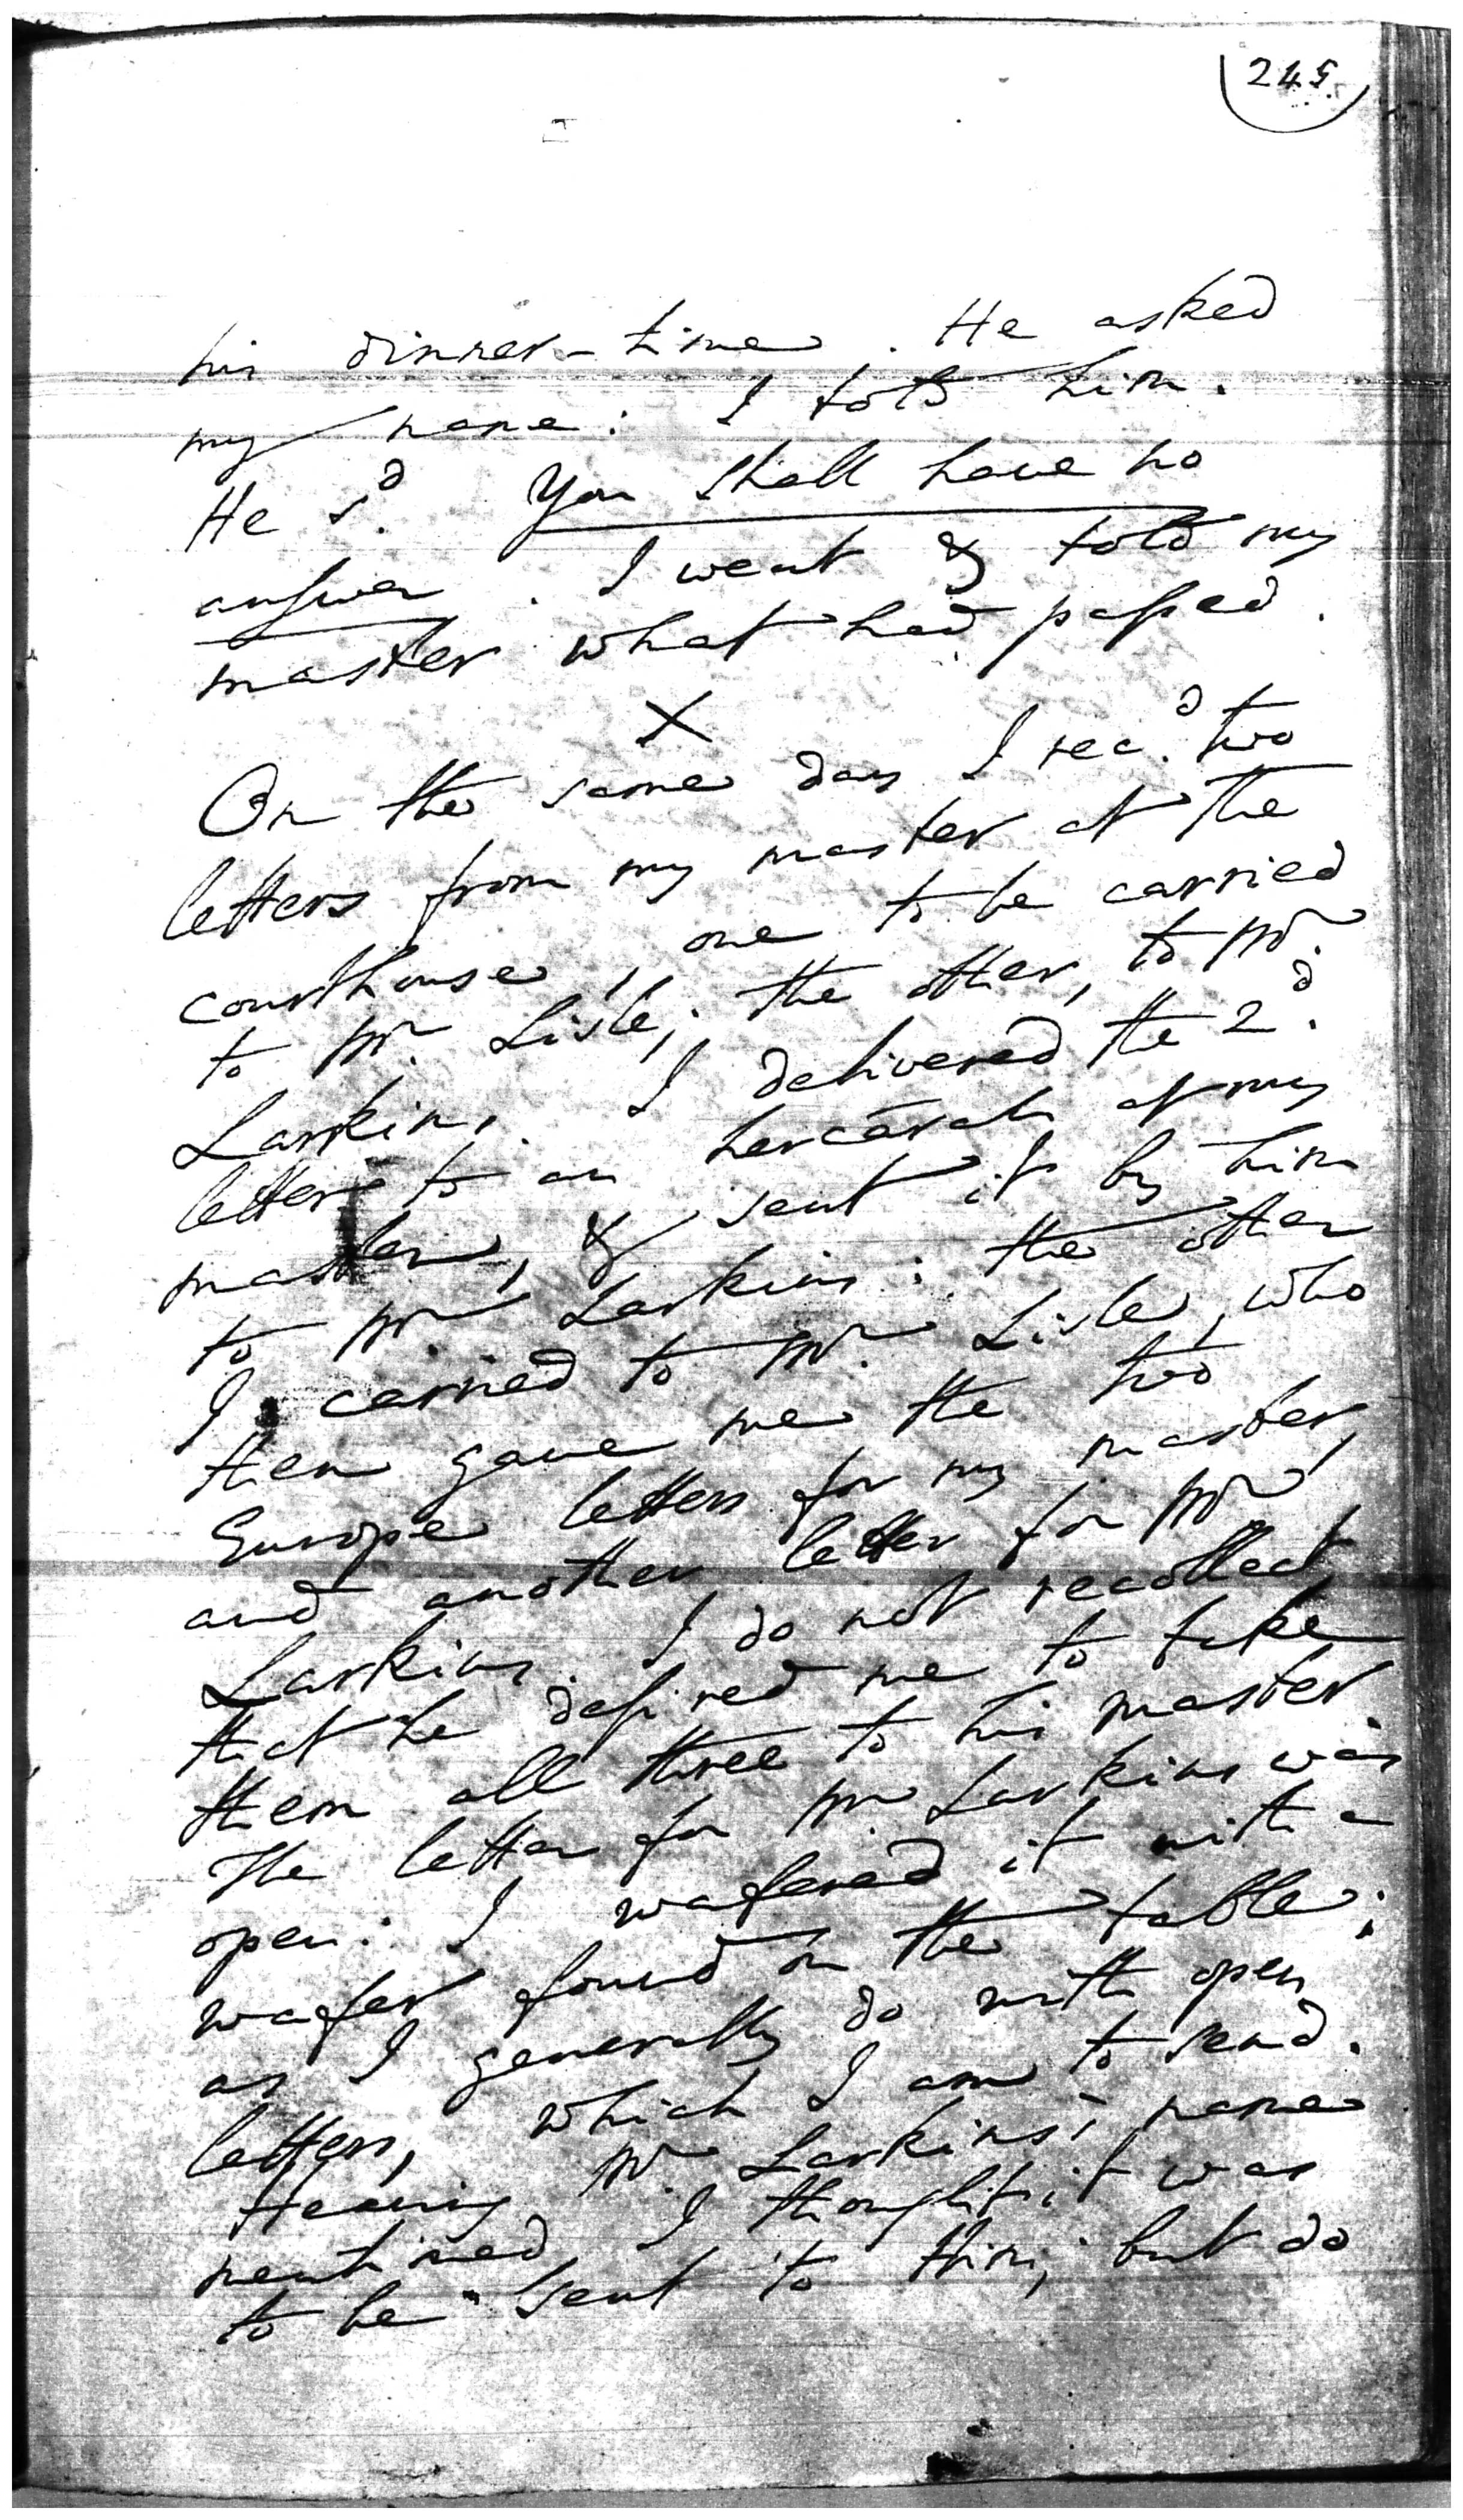 245
his dinner-time. He asked
my name: I told him.
He s.d You shall have no
answer. I went & told my
master what had passed.
X
On the same day I rec.d two
letters from my master at the
courthouse, one to be carried
to Mr. Lisle; the other, to Mr.
Larkins. I delivered the 2.d
letter to an hercarah of my
master, & sent it by him
to Mr Larkins: the other
I carried to Mr. Lisle, who
then gave me the two
Europe letters for my master,
and another letter for Mr.
Larkins. I do not recollect
that he desired me to take
them all three to his master.
The letter for Mr Larkins was
open: I wafered it with a
wafer found on the table;
as I generally do with open
letters, which I am to send.
Hearing Mr. Larkins's name
mentioned, I thought it was
to be sent to him; but do